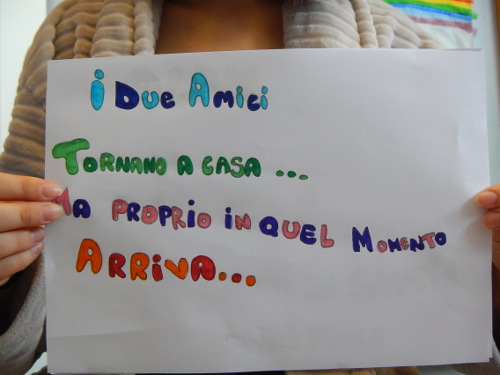 i Due Amici
Tornano a casa ...
Ma proprio in quel Momento
Arriva...